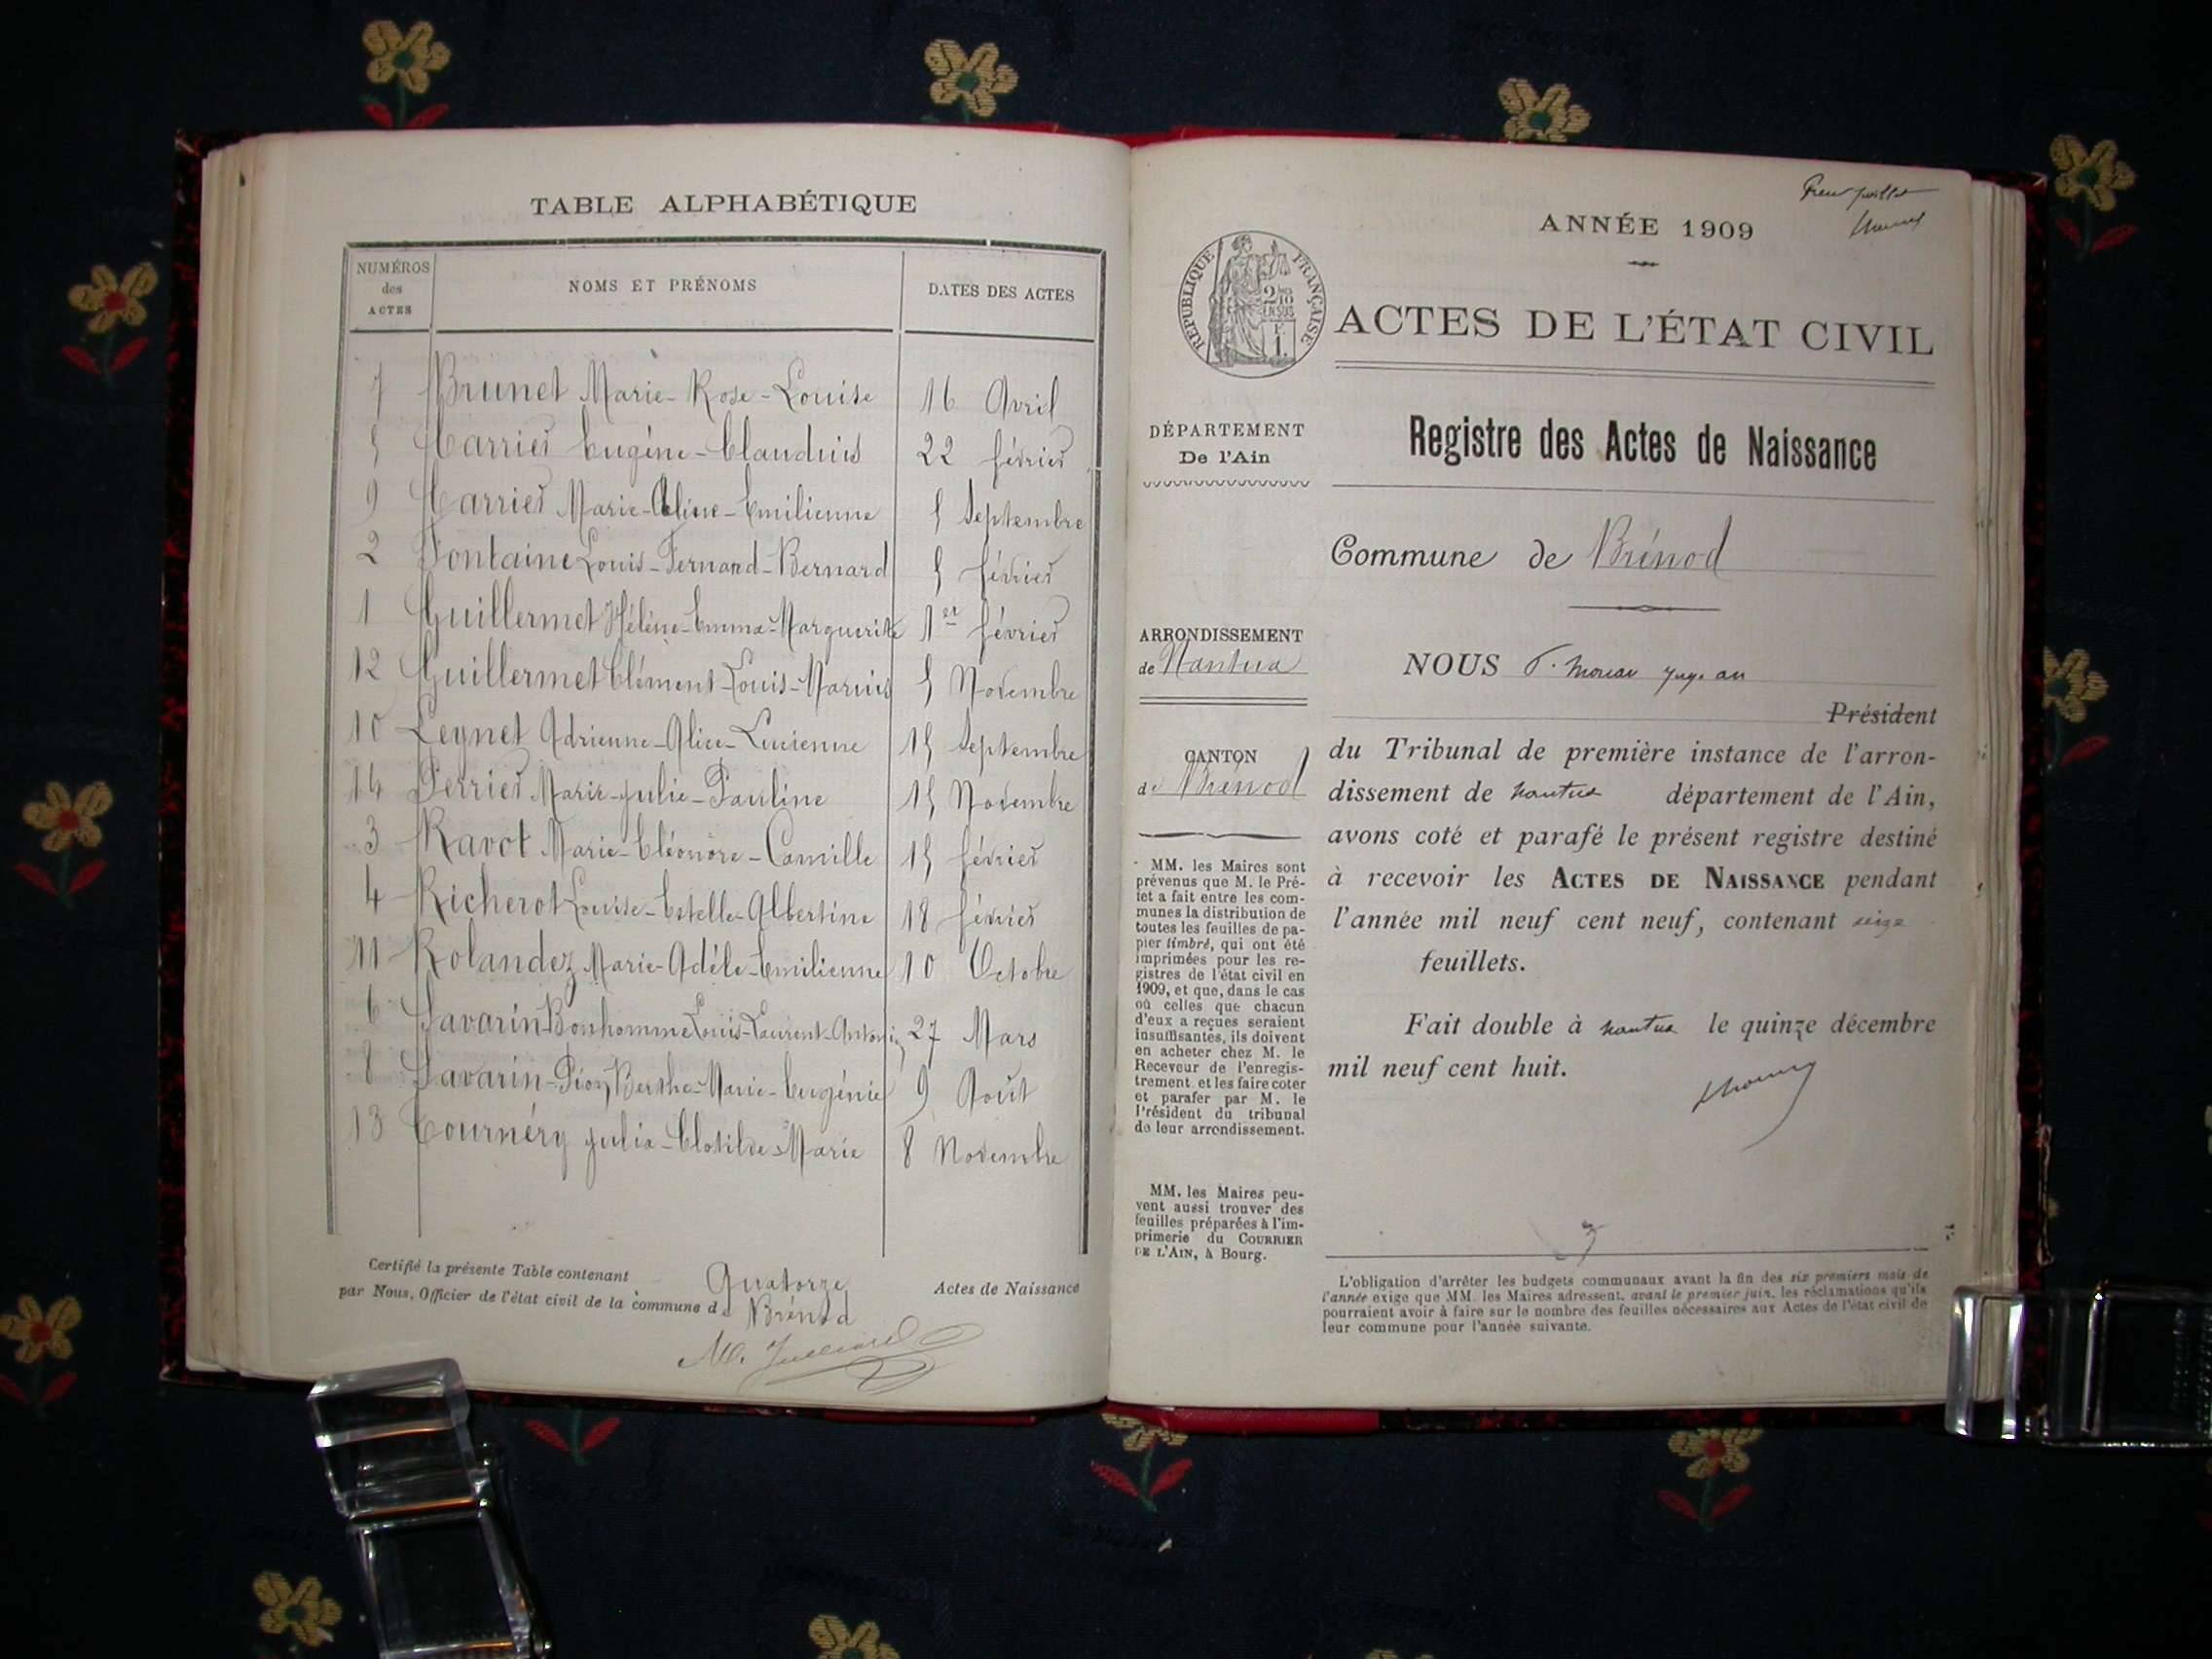 TABLE ALPHABÉTIQUE
NUMÉROS des ACTES
NOMS ET PRÉNOMS
DATES DES ACTES
7 Brunet Marie-Rose-Louise 16 Avril
5 Carrier Eugène-Claudius 22 février
9 Carrier Marie-Aline-Emilienne 5 Septembre
2 Fontaine Louis-Fernand-Bernard 5 février
1 Guillermet Hélène-Emma-Marguerite 1er février
12 Guillermet Clément-Louis-Marius 5 Novembre
10 Leynet Adrienne-Alice-Lucienne 15 Septembre
14 Perrier Marie-Julie-Pauline 15 Novembre
3 Ravot Marie-Eléonore-Camille 15 février
4 Richerot Louise-Estelle-Albertine 18 février
11 Rolandez Marie-Adèle-Emilienne 10 Octobre
6 Savarin-Bonhomme Louis-Laurent-Antonin 27 Mars
8 Savarin-Pion Berthe-Marie-Eugénie 9 Août
13 Tournéry Julia-Clotilde-Marie 8 Novembre
Certifié la présente Table contenant Quatorze Actes de Naissance
par Nous, Officier de l'état civil de la commune de Brénod
ANNÉE 1909
RÉPUBLIQUE FRANÇAISE
2/10 EN SUS
1
ACTES DE L'ÉTAT CIVIL
DÉPARTEMENT
De l'Ain
Registre des Actes de Naissance
Commune de Brénod
ARRONDISSEMENT
de Nantua
CANTON
de Brénod
MM. les Maires sont
prévenus que M. le Pré-
fet a fait entre les com-
munes la distribution de
toutes les feuilles de pa-
pier timbré, qui ont été
imprimées pour les re-
gistres de l'état civil en
1909, et que, dans le cas
où celles que chacun
d'eux a reçues seraient
insuffisantes, ils doivent
en acheter chez M. le
Receveur de l'enregis-
trement et les faire coter
et parafer par M. le
Président du tribunal
de leur arrondissement.
MM. les Maires peu-
vent aussi trouver des
feuilles préparées à l'im-
primerie du COURRIER
DE L'AIN, à Bourg.
NOUS P. Moreau Juge au
Président
du Tribunal de première instance de l'arron-
dissement de nantua département de l'Ain,
avons coté et parafé le présent registre destiné
à recevoir les ACTES DE NAISSANCE pendant
l'année mil neuf cent neuf, contenant seize
feuillets.
Fait double à nantua le quinze décembre
mil neuf cent huit.
L'obligation d'arrêter les budgets communaux avant la fin des six premiers mois de
l'année exige que MM. les Maires adressent, avant le premier juin, les réclamations qu'ils
pourraient avoir à faire sur le nombre des feuilles nécessaires aux Actes de l'état civil de
leur commune pour l'année suivante.